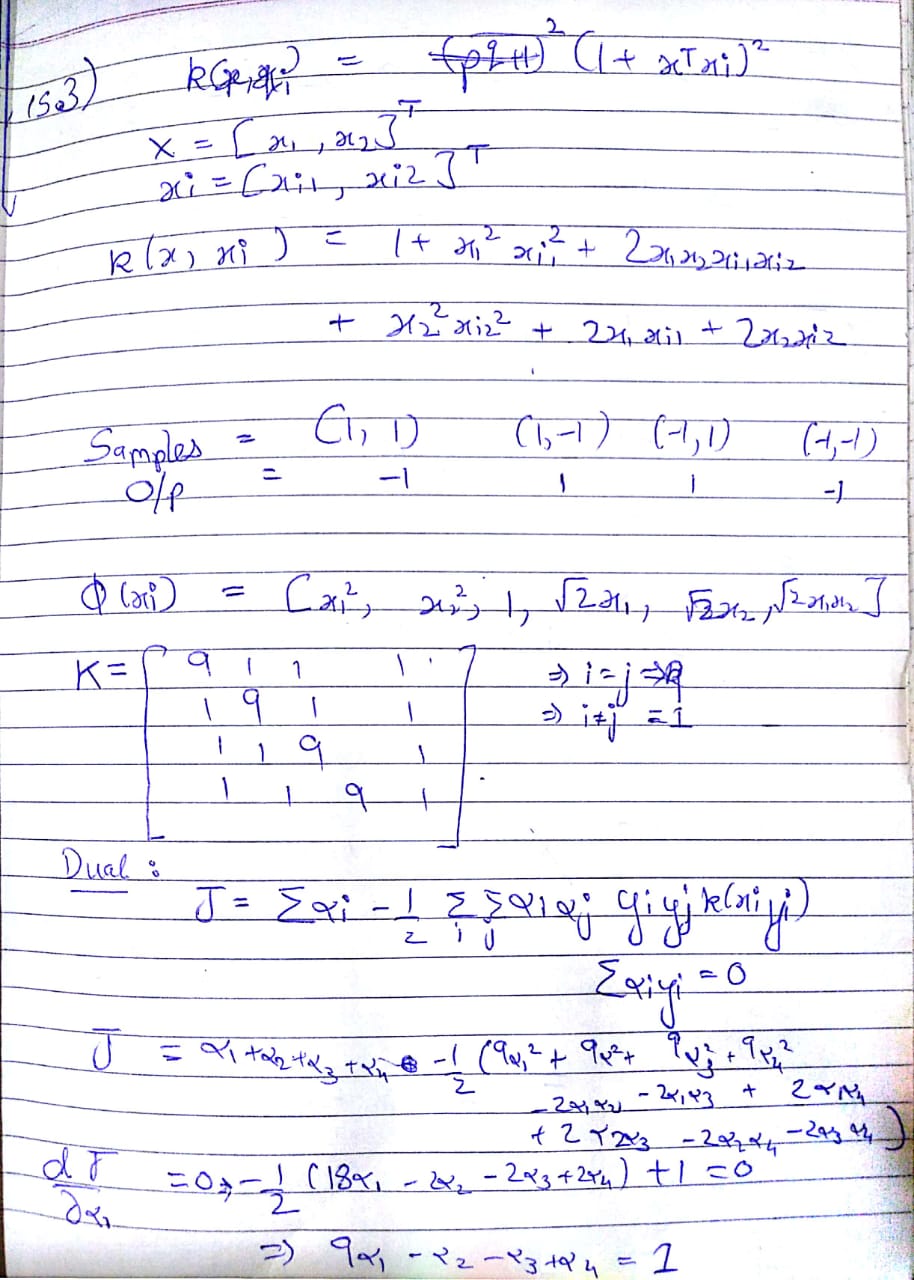 15.3) k(x, xi) = (1 + xᵀxi)²
x = [x₁, x₂]ᵀ
xi = [xi1, xi2]ᵀ
k(x, xi) = 1 + x₁² xi₁² + 2x₁x₂xi1xi2
+ x₂² xi2² + 2x₁xi1 + 2x₂xi2
Samples = (1, 1) (1,-1) (-1,1) (-1,-1)
O/p = -1 1 1 -1
Φ(xi) = [x₁², x₂², 1, √2x₁, √2x₂, √2x₁x₂]
K = [ 9 1 1 1 ⇒ i = j ⇒ 9
1 9 1 1 ⇒ i ≠ j = 1
1 1 9 1
1 1 9 1 ]
Dual :
J = Σαi - 1/2 Σi Σj αiαj yiyj k(xi yj)
Σαiyi = 0
J = α₁ + α₂ + α₃ + α₄ - 1/2 (9α₁² + 9α₂² + 9α₃² + 9α₄²
- 2α₁α₂ - 2α₁α₃ + 2α₁α₄
+ 2α₂α₃ - 2α₂α₄ - 2α₃α₄)
dJ/∂α₁ = 0 ⇒ -1/2 (18α₁ - 2α₂ - 2α₃ + 2α₄) + 1 = 0
⇒ 9α₁ - α₂ - α₃ + α₄ = 1